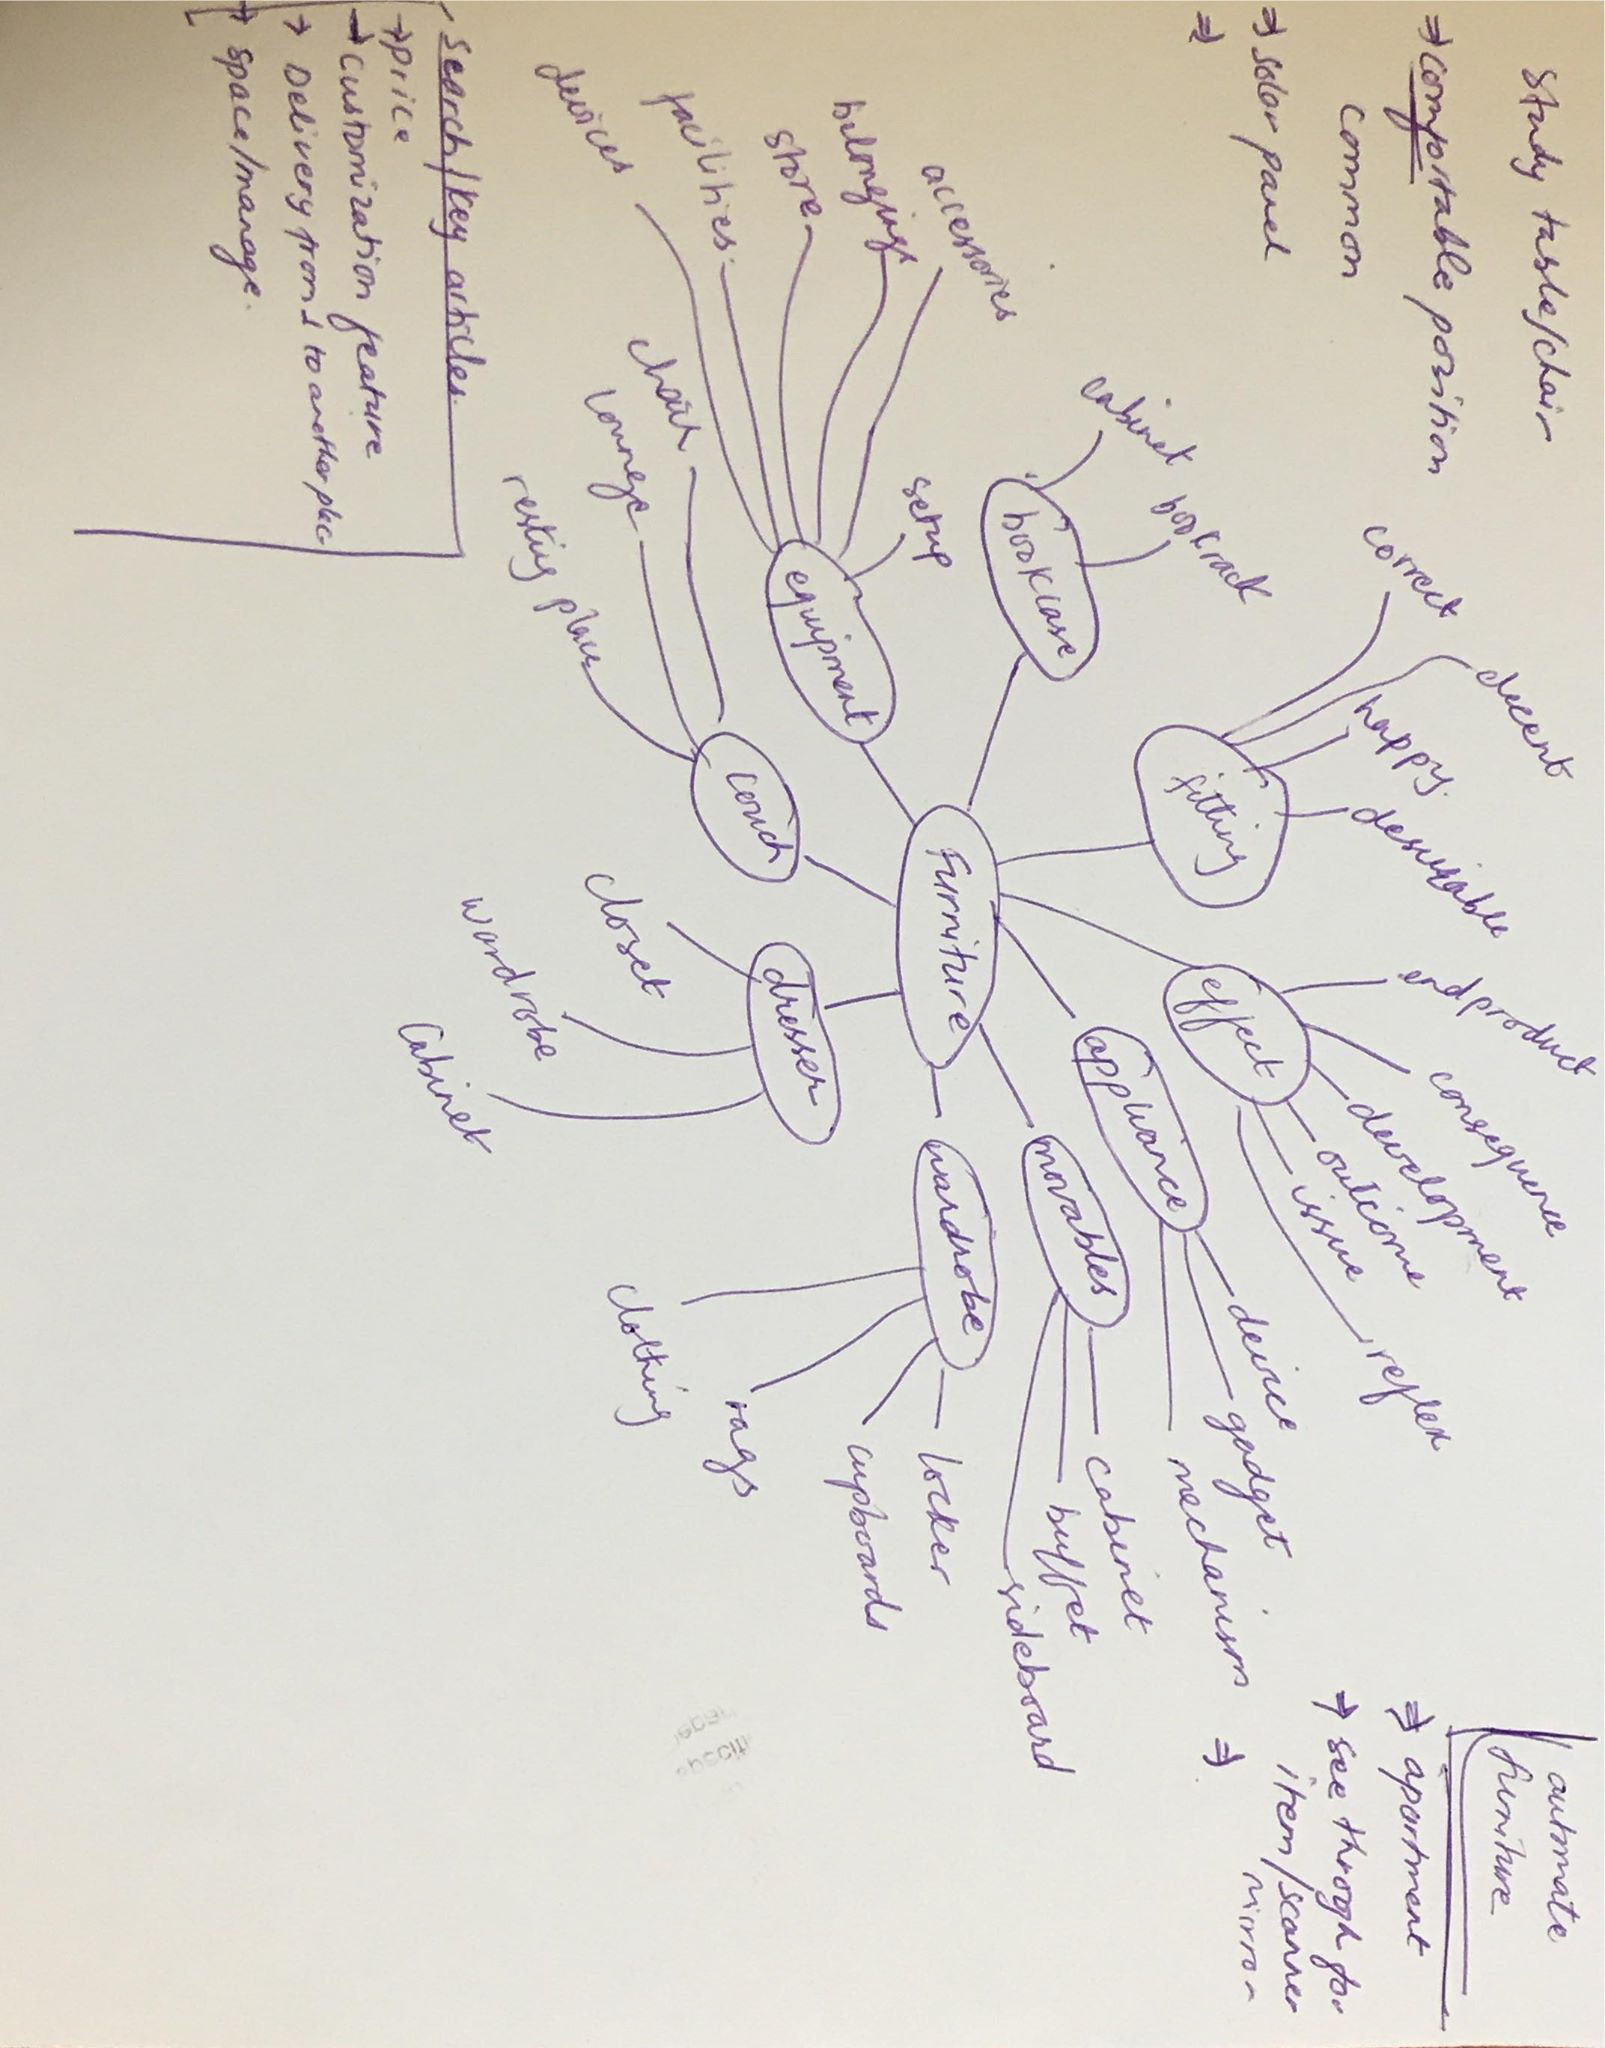 Study table/chair
⇒ comportable position
common
⇒ solar panel
⇒
automate
furniture
⇒ apartment
⇒ see through for
item/scanner
mirror
⇒
correct
decent
happy
desirable
fitting
endproduct
consequence
development
outcome
issue
reflex
effect
cabinet
bookrack
bookcase
device
gadget
mechanism
appliance
accessories
belongings
store
facilities
devices
setup
equipment
Furniture
movables
cabinet
buffet
sideboard
wardrobe
locker
cupboards
rags
clothing
chair
lounge
resting place
couch
dresser
closet
wardrobe
Cabinet
Search/key articles
→ price
→ customization feature
→ Delivery from 1 to another place
→ space/manage.